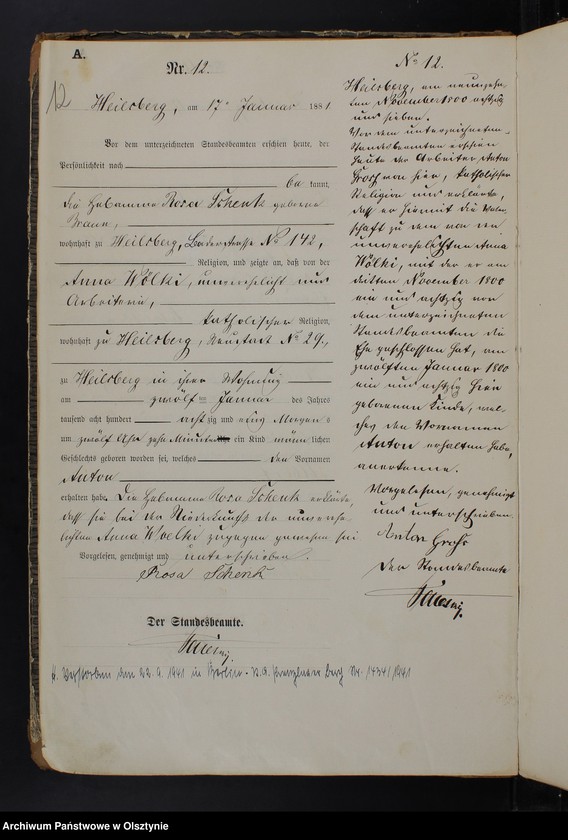 A.
Nr. 12.
12
Heilsberg, am 17. Januar 1881.
Vor dem unterzeichneten Standesbeamten erschien heute, der
Persönlichkeit nach
be kannt,
die Hebamme Rosa Schenk geborene
Braun,
wohnhaft zu Heilsberg, Baderstrasse No 142,
Religion, und zeigte an, daß von der
Anna Wölki, unverehelicht und
Arbeiterin,
katholischer Religion,
wohnhaft zu Heilsberg, Neustadt No 29,
zu Heilsberg in ihrer Wohnung
am zwölf ten Januar des Jahres
tausend acht hundert acht zig und eins Morgens
um zwölf Uhr zehn Minuten ein Kind männ lichen
Geschlechts geboren worden sei, welches den Vornamen
Anton
erhalten habe. Die Hebamme Rosa Schenk erklärte,
daß sie bei der Niederkunft der unverehe-
lichten Anna Woelki zugegen gewesen sei
Vorgelesen, genehmigt und unterschrieben.
Rosa Schenk
Der Standesbeamte.
No 12.
Heilsberg, am neunzehn-
ten November 1800 achtzig
und sieben.
Vor dem unterzeichneten
Standesbeamten erschien
heute der Arbeiter Anton
Grosch von hier, katholischer
Religion und erklärte,
daß er hiermit die Vater-
schaft zu dem von der
unverehelichten Anna
Wölki, mit der er am
dritten November 1800
ein und achtzig vor
dem unterzeichneten
Standesbeamten die
Ehe geschlossen hat, am
zwölften Januar 1800
ein und achtzig hier
geborenen Kinde, wel-
ches den Vornamen
Anton erhalten habe,
anerkenne.
Vorgelesen, genehmigt
und unterschrieben.
Anton
Der Standesbeamte
Verstorben den 22. 6. 1941 in Berlin - Prenzlauer Berg Nr. 1434/1941
Archiwum Państwowe w Olsztynie